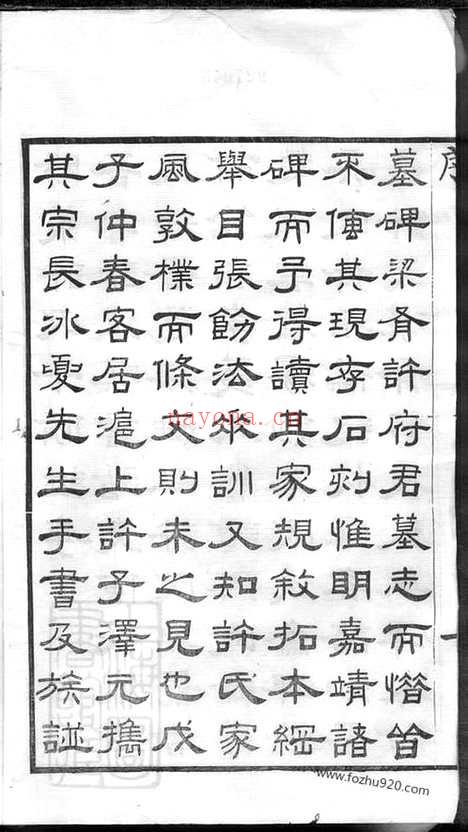 序
墓碑梁有許府君墓志而惜皆
不傳其現存石刻惟明嘉靖諸
碑而予得讀其家規敘拓本綱
舉目張飭法垂訓又知許氏家
風敦樸而條文則未之見也戊
子仲春客居滬上許子澤元攜
其宗長冰夏先生手書及族誌
nayona.cn
www.fozhu920.com